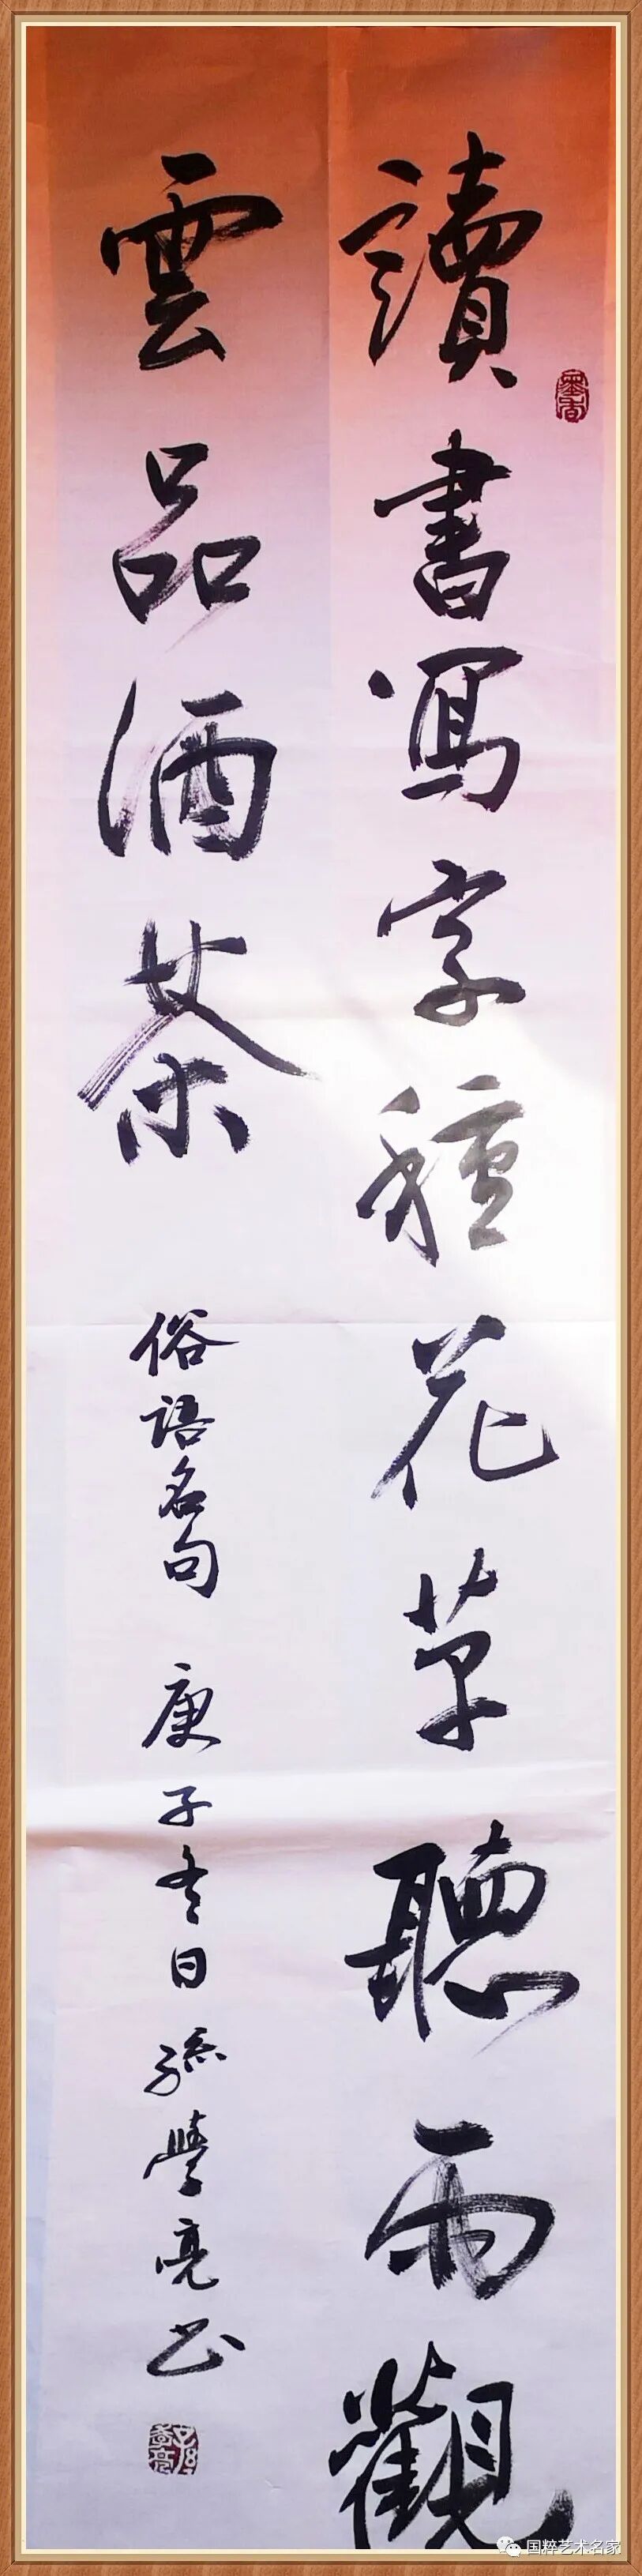 讀書寫字種花草聽雨觀
雲品酒茶
俗語名句 庚子冬日 孫學亮书
墨香
国粹艺术名家